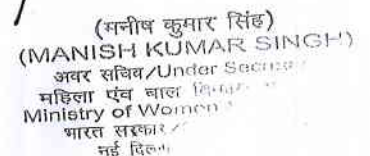 (मनीष कुमार सिंह)
(MANISH KUMAR SINGH)
अवर सचिव/Under
महिला एंव बाल
Ministry of Women
भारत सरकार/
नई